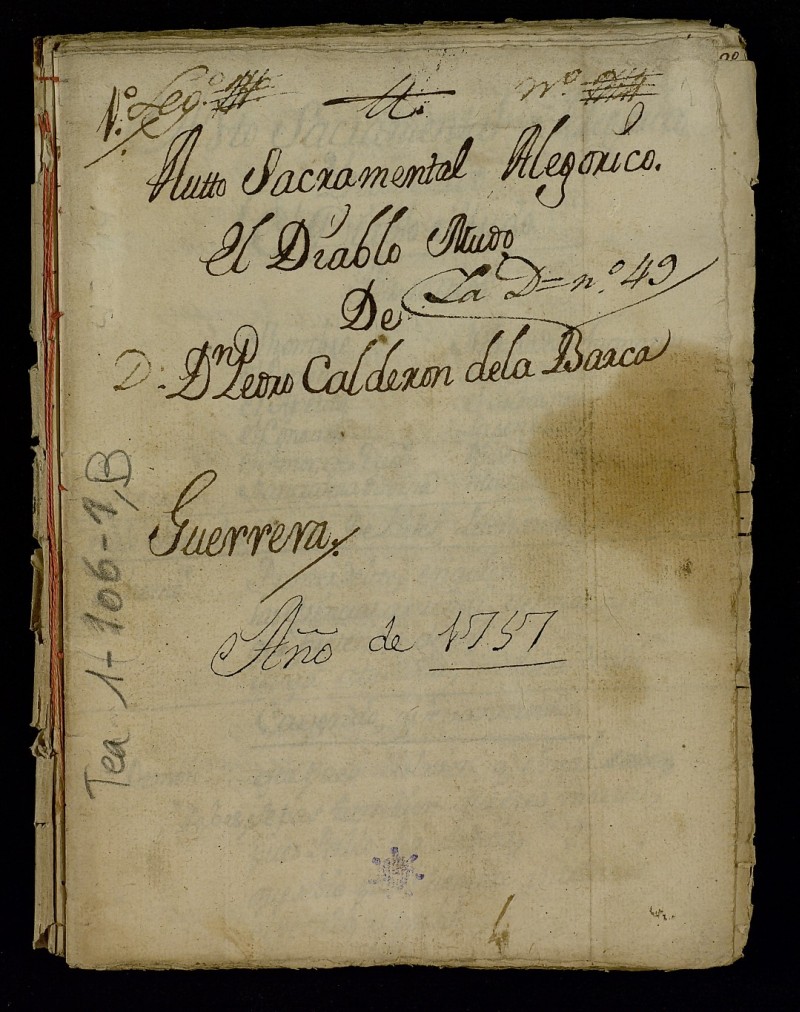 1.º Leg.º
N.º
Autto Sacramental Alegorico.
El Diablo Mudo
La D= n.º 49
De
D. Dn Pedro Calderon dela Barca
Guerrera.
Año de 1757
Tea 1-106-1, B